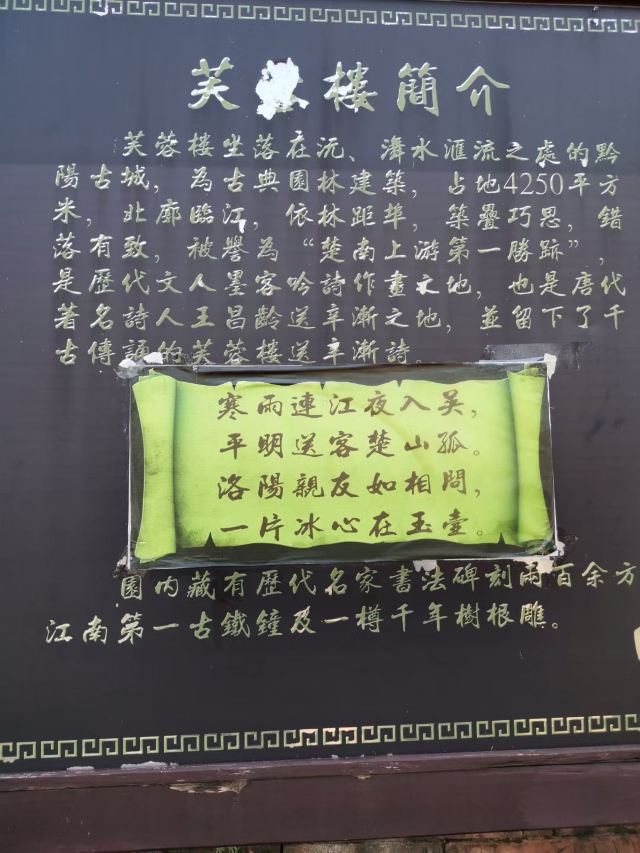 芙 樓簡介
芙蓉樓坐落在沅、㵲水滙流之處的黔
陽古城，為古典園林建築，占地4250平方
米，北廊臨江，依林距埠，築疊巧思，錯
落有致，被譽為“楚南上游第一勝跡”，
是歷代文人墨客吟詩作畫之地，也是唐代
著名詩人王昌齡送辛漸之地，並留下了千
古傳誦的芙蓉樓送辛漸詩。
寒雨連江夜入吴，
平明送客楚山孤。
洛陽親友如相問，
一片冰心在玉壺。
園内藏有歷代名家書法碑刻兩百余方
江南第一古鐵鐘及一樽千年樹根雕。